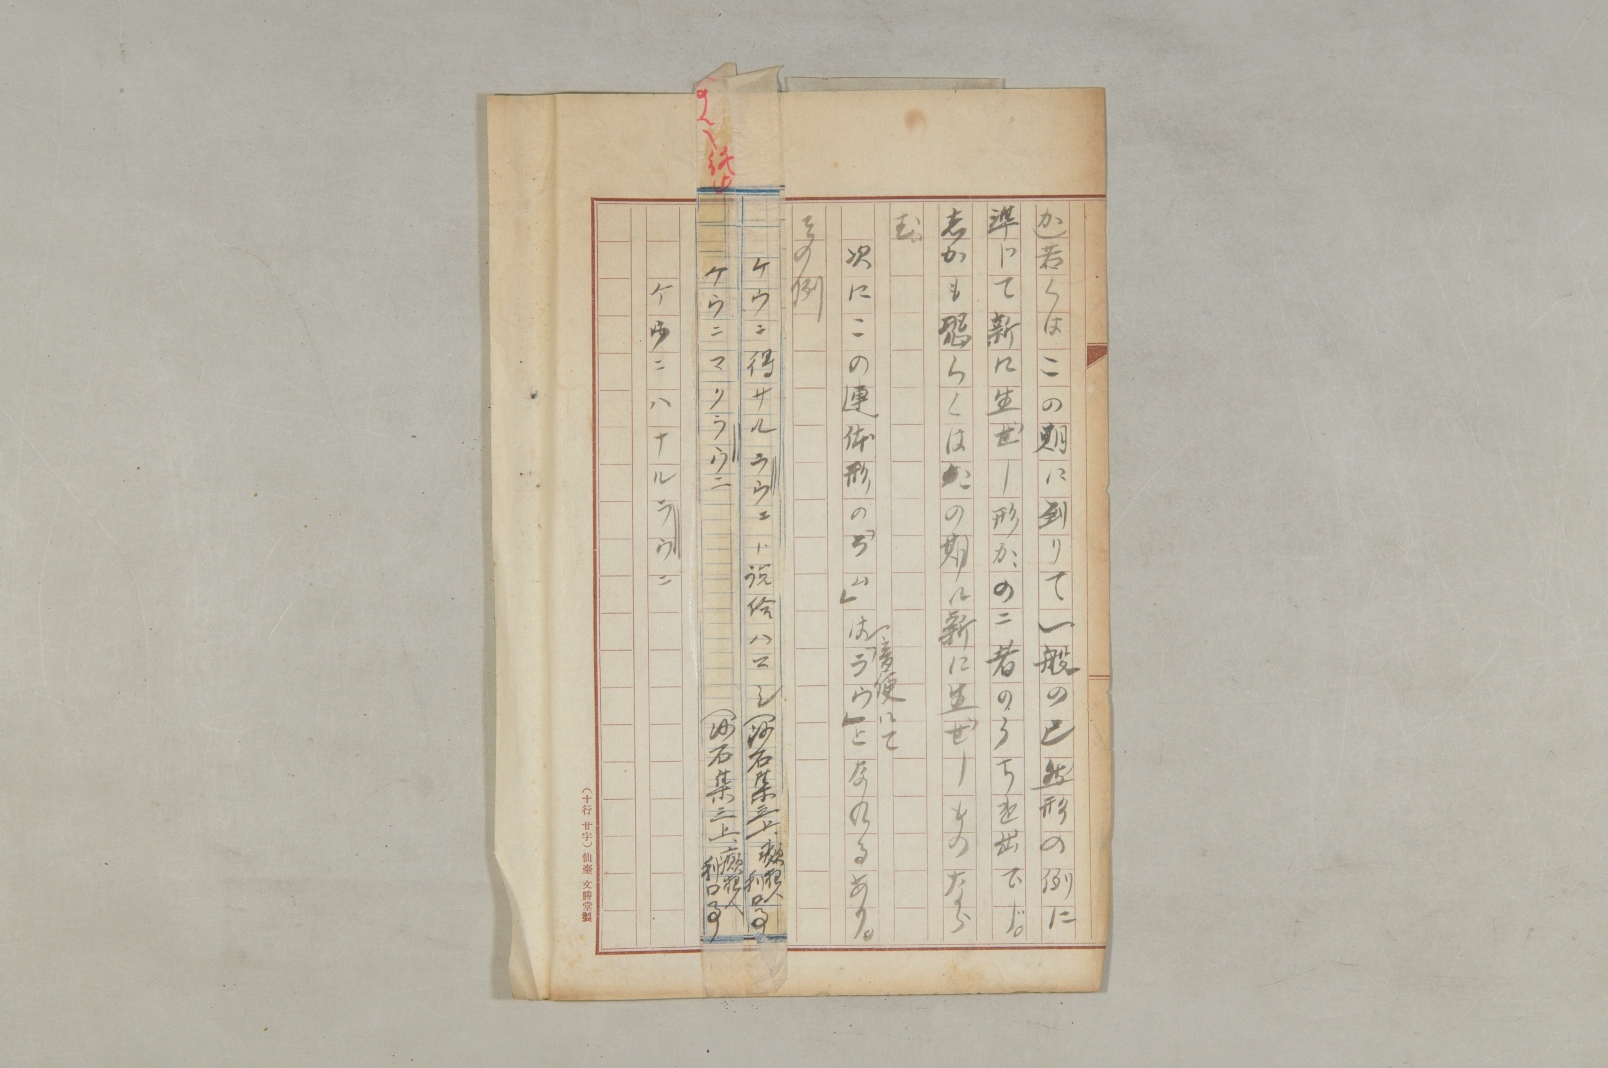 か若くはこの期に到りて一般の已然形の例に
準じて新に生ぜし形か、の二者のうちを出でじ。
志かも恐らくはこの期に新に生ぜしものなら
む。
次にこの連体形の「らむ」は「ラウ」と
音便にて
なれるあり。
その例
ケウニ得サルラウニト説給ハコソ(沙石集三上、癲狂人利口事
ケウニマサラウニ(沙石集三上、癲狂人利口事
ケウニハナルラウニ
(十行 廿字) 仙臺 文勝堂製